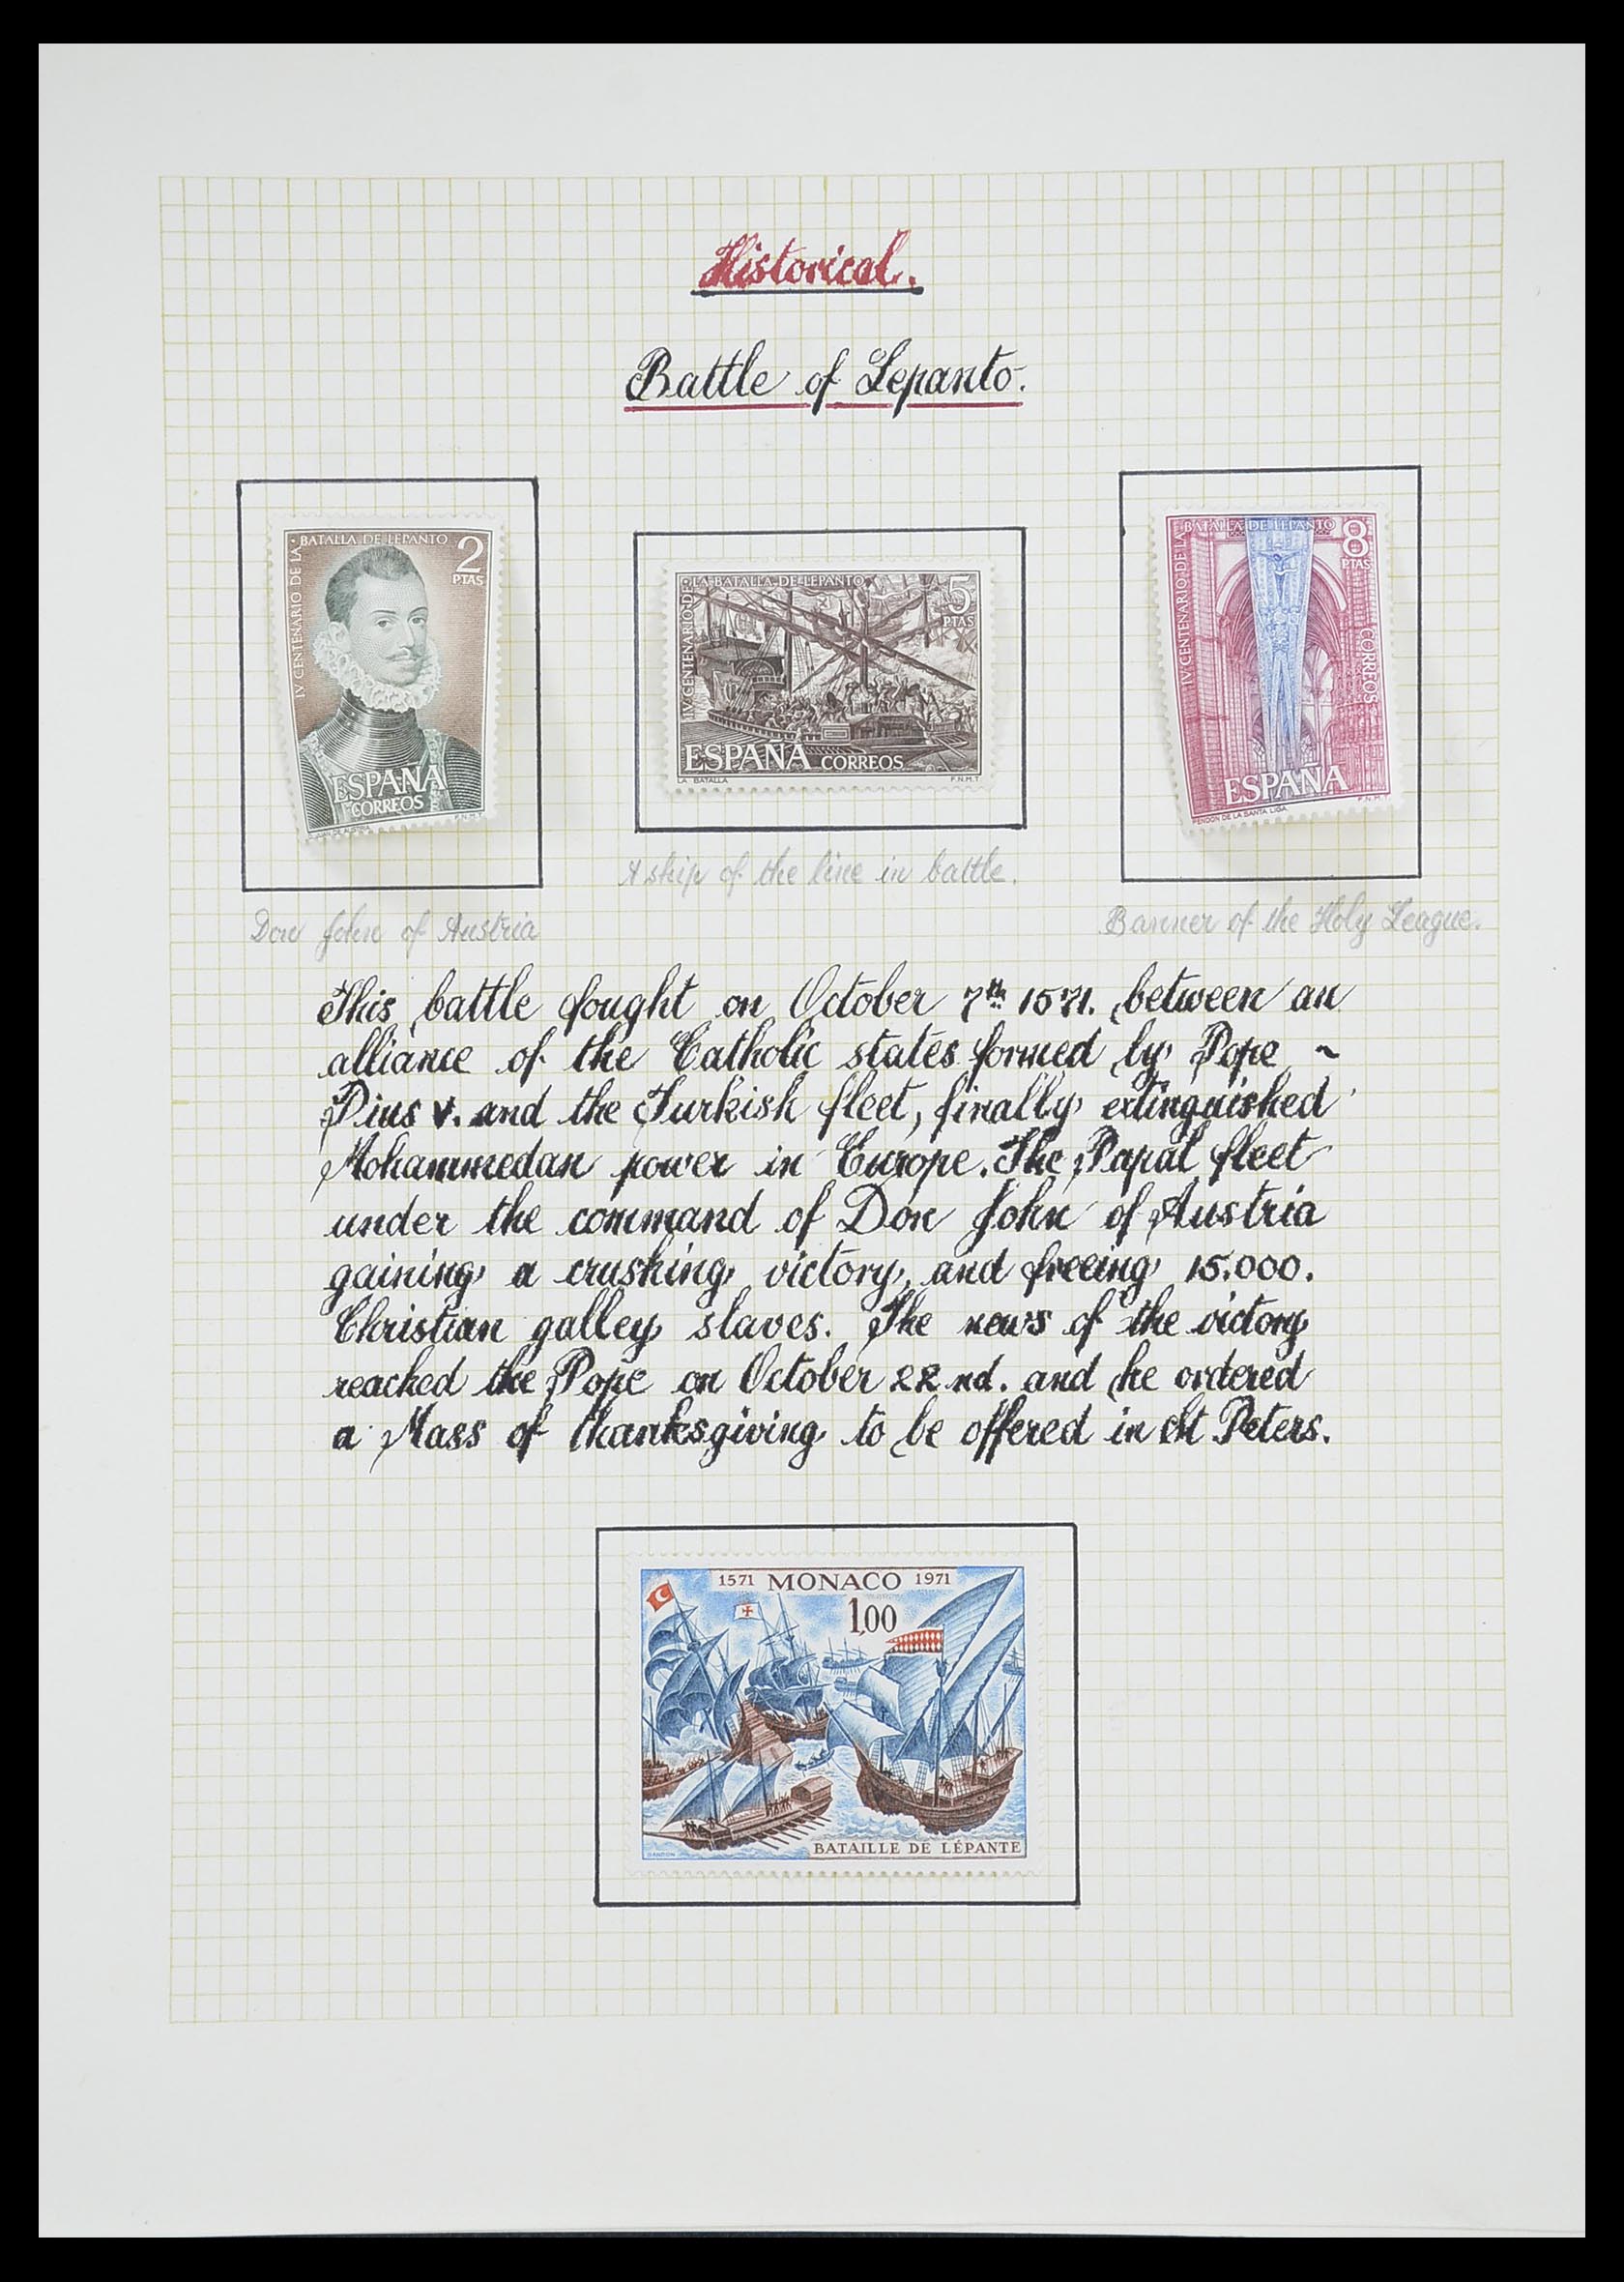 Historical.
Battle of Lepanto.
IV CENTENARIO DE LA BATALLA DE LEPANTO
2
PTAS
ESPAÑA
CORREOS
F.N.M.T.
IV CENTENARIO DE LA BATALLA DE LEPANTO
5
PTAS
ESPAÑA CORREOS
LA BATALLA F.N.M.T.
IV CENTENARIO DE LA BATALLA DE LEPANTO
8
PTAS
CORREOS
ESPAÑA
PENDON DE LA SANTA LIGA F.N.M.T.
Don John of Austria
A ship of the line in battle.
Banner of the Holy League.
This battle fought on October 7th 1571. between an
alliance of the Catholic states formed by Pope ~
Pius V. and the Turkish fleet, finally extinguished
Mohammedan power in Europe. The Papal fleet
under the command of Don John of Austria
gaining a crushing victory, and freeing 15.000.
Christian galley slaves. The news of the victory
reached the Pope on October 22nd. and he ordered
a Mass of thanksgiving to be offered in St Peters.
1571 MONACO 1971
1,00
BATAILLE DE LÉPANTE